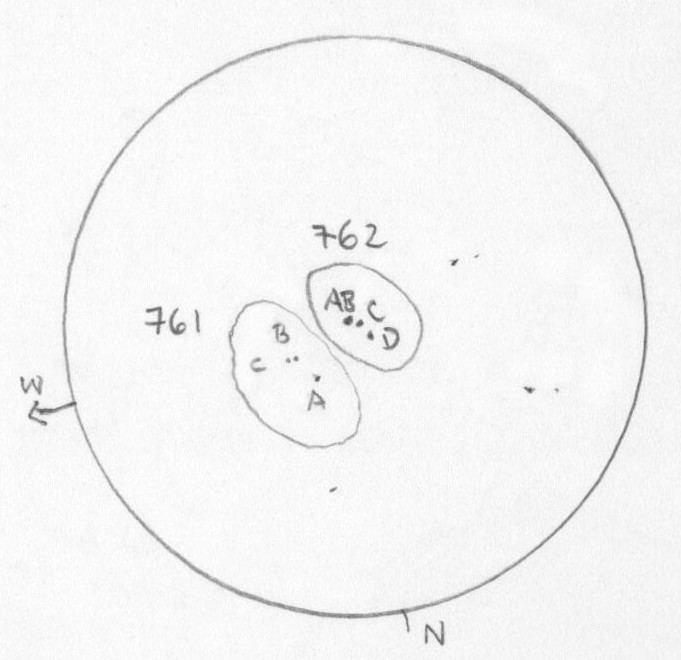 762
AB C
D
761
B
C
A
W
N